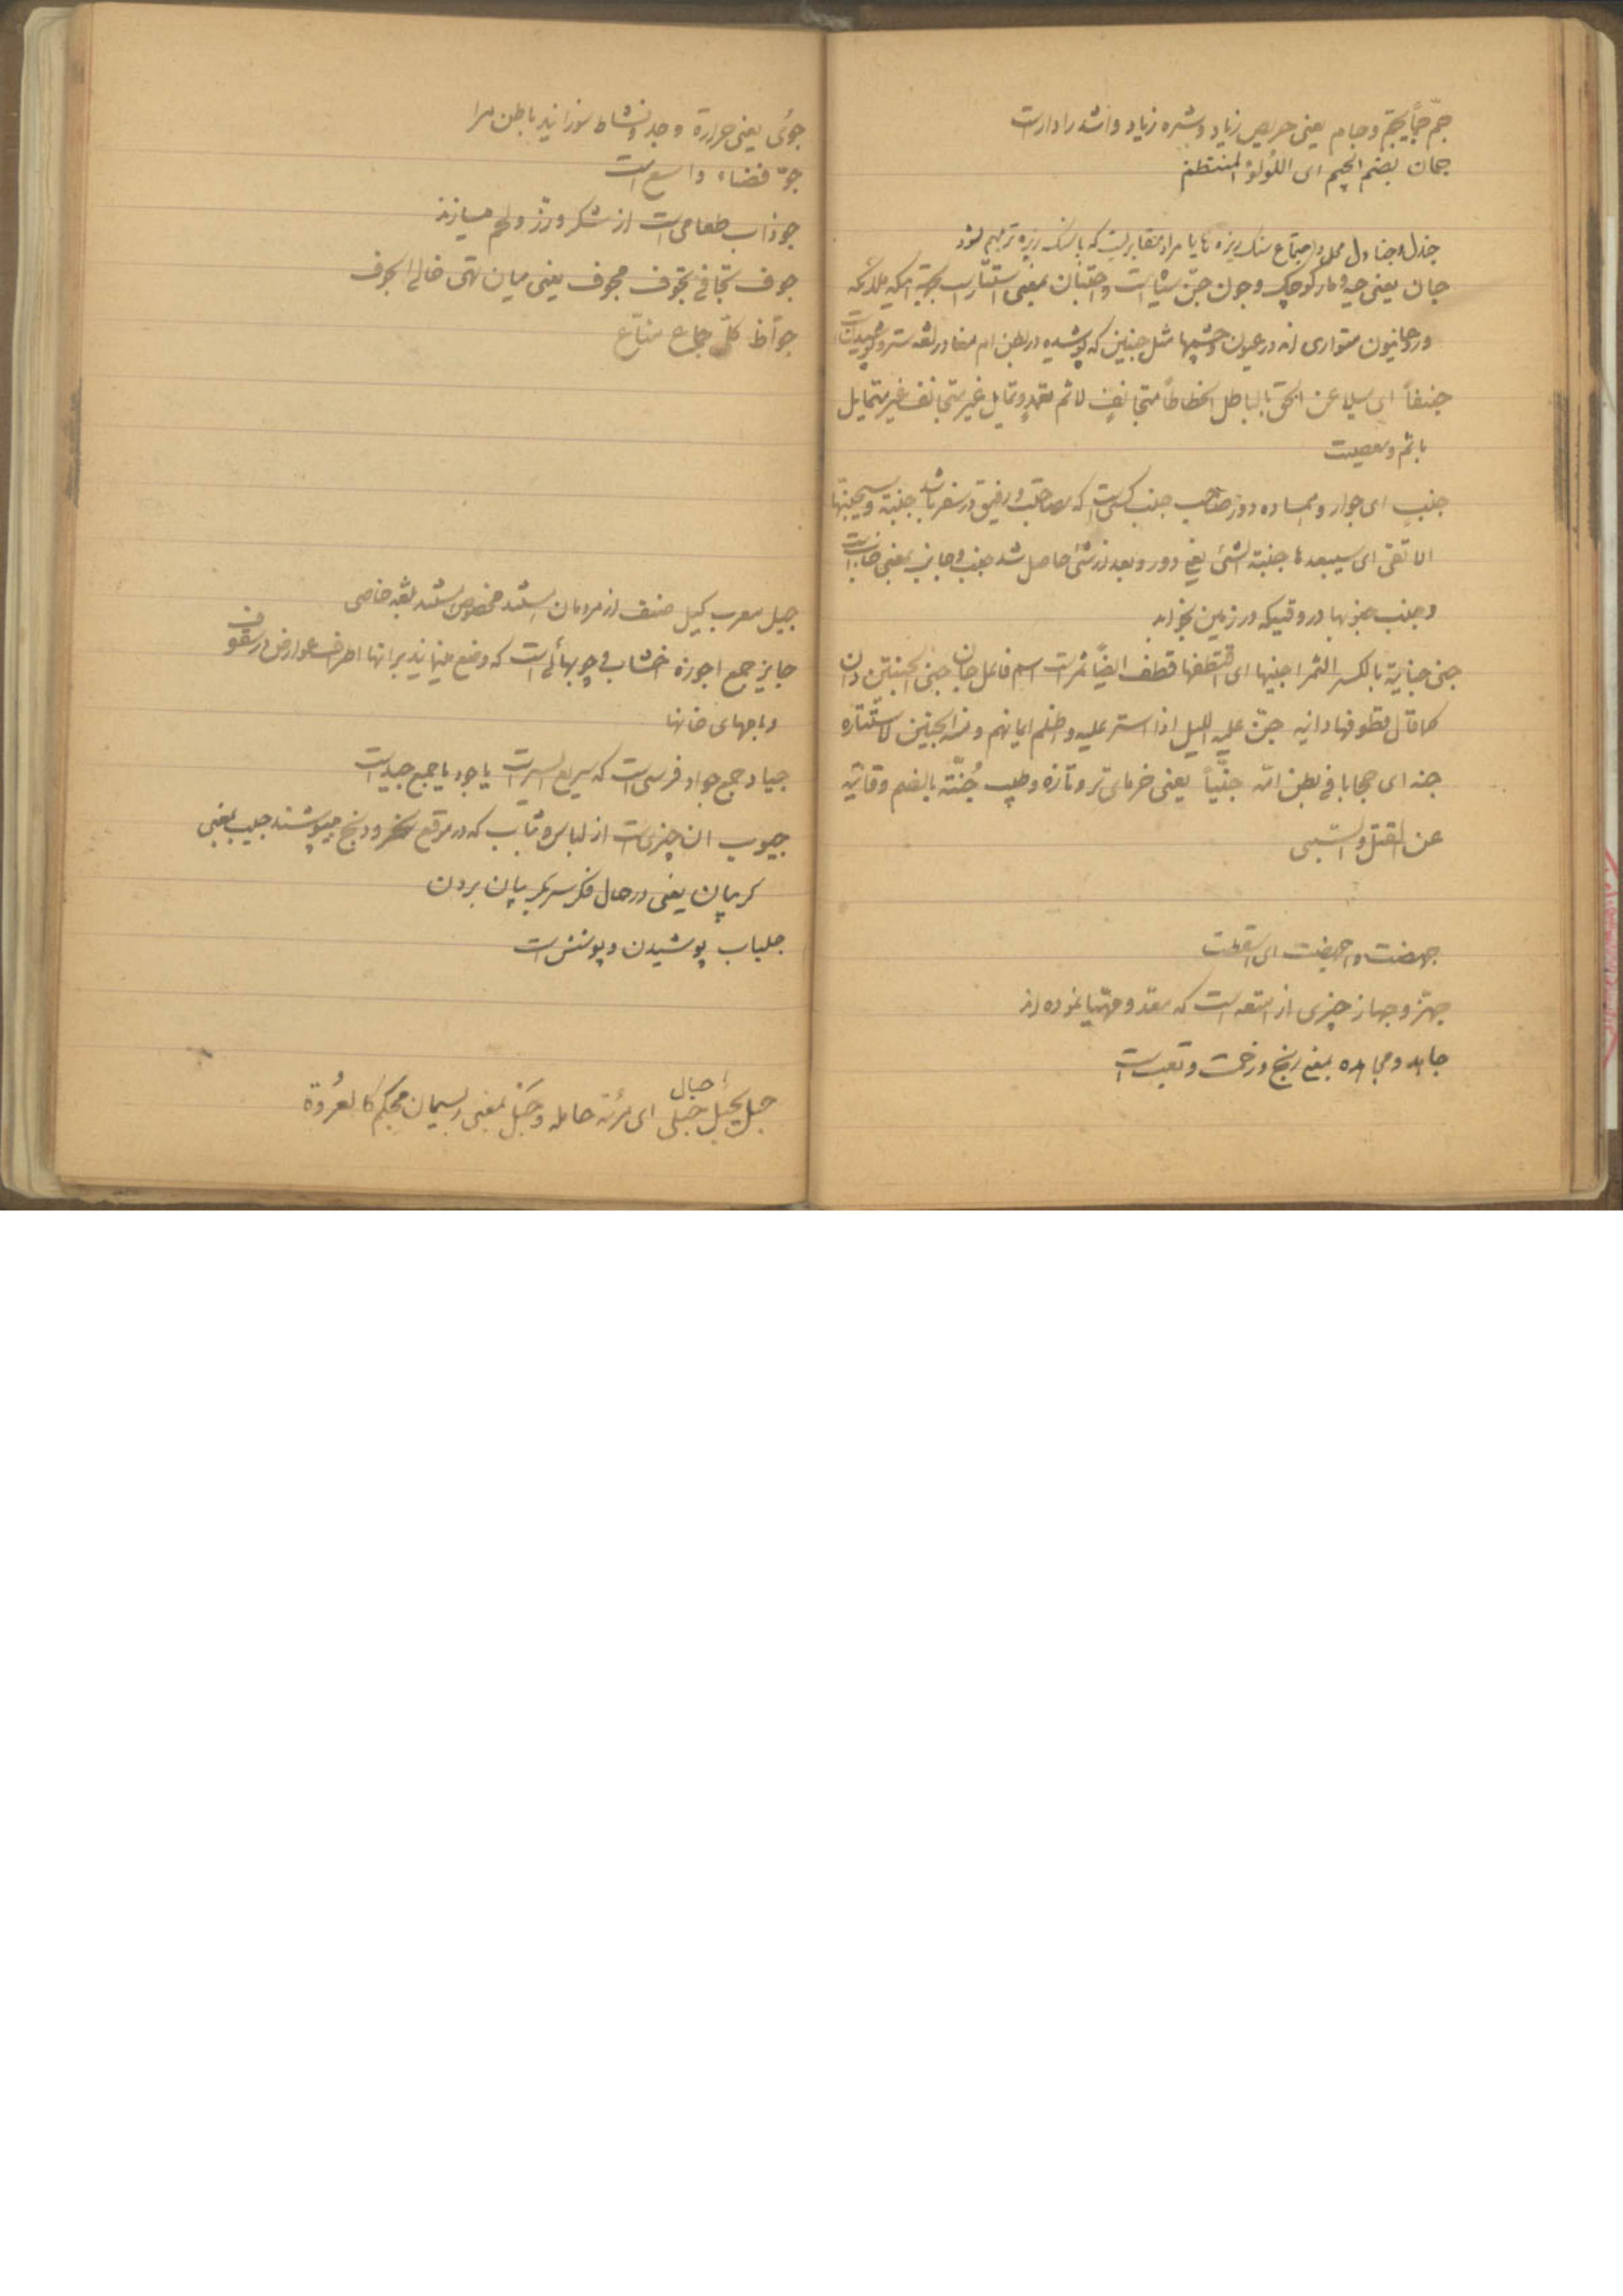 جمّ جمّاً یجمّ و جام یعنی حریص زیاد و شره زیاد و اشد را دار است
جمان بضم الجیم ای اللؤلؤ المنتظم
جندل و جنادل محل و اجتماع سنک ریزه ها یا مراد مقابریست که با سنک ریزه ترمیم شود
جان یعنی حیه و مار کوچک و چون جنّ است و اجتنان بمعنی استتار است بجهة آنکه ملائکه
و روحانیون متواری اند در عیون و چشمها مثل جنین که پوشیده در بطن ام معنا در لغه ستر و پوشیدن است
جنفاً ای میلا عن الحق بالباطل متجانفٍ لاثم تعمد و تمایل غیر متجانف غیر متمایل
باثم و معصیت
جنب ای جوار و همساده و صاحب جنب کسی است که مصاحب و رفیق در سفر باشد جنبة و سیجنبها
الاتقی ای سیبعدها جنبة الشئ یعنی دور و بعد از شئ حاصل شد جنب و جانب بمعنی جانب است
و جنب جنوبها در وقتیکه در زمین بخوابد
جنی جنایة بالکسر الثمر اجنیها ای اقتطفها قطف ایضاً ثمر است اسم فاعل جان جنی الجنتین دان
کما قال قطوفها دانیه جنّ علیه اللیل اذا استر علیه و اظلم و منه الجنین لاستتاره
جنه ای حجابا فی بطن امّه جنیّاً یعنی خرمای تر و تازه و طیب جُنّة بالضم وقایة
عن القتل و السبی
جهضت و اجهضت ای اسقطت
جهّز و جهاز چیزی از امتعه است که معد و مهیّا نموده اند
جاهد و مجاهده بمعنی رنج و زحمت و تعب است
جوی یعنی حرارة و جد و نشاط سوزانید باطن مرا
جوّ فضاء واسع است
جوذاب طعامی است از شکر و رزّ و لحم میسازند
جوف تجافی تجوف مجوف یعنی میان تهی خالی الجوف
جوّاظ کلّ جماع منّاع
جیل معرب کیل صنف از مردمان استند مخصوص استند بلغه خاصی
جایز جمع اجوزه اخشاب و چوبهائی است که وضع مینمایند بر آنها اطراف عوارض در سقوف
و بامهای خانها
جیاد جمع جواد فرسی است که سریع السیر است یا جود یا جمع جید است
جیوب ان چیزی است از لباس و ثیاب که در موقع و رنج میپوشند جیب بمعنی
کریبان یعنی در حال فکر سر بکریبان بردن
جلباب پوشیدن و پوشش است
حبل یحبل حبلی حبال ای مرئه حامله و حَبْل بمعنی ریسمان محکم کالعُروُة